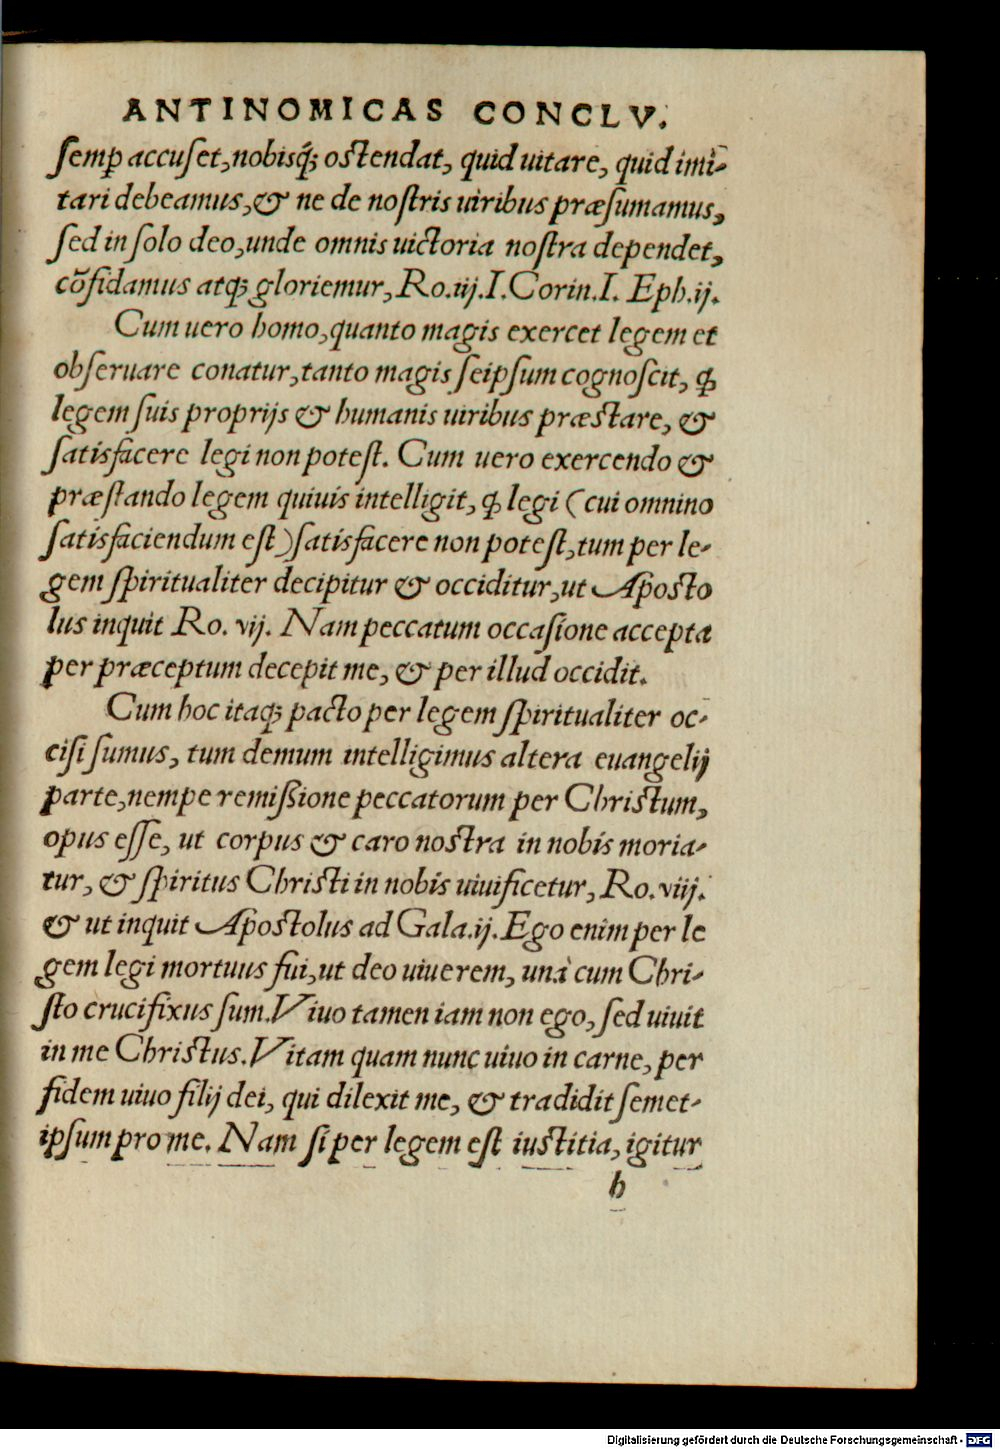 ANTINOMICAS CONCLV.
ſemꝑ accuſet, nobisq́ꝫ oſtendat, quid uitare, quid imi-
tari debeamus, & ne de noſtris uiribus præſumamus,
ſed in ſolo deo, unde omnis uictoria noſtra dependet,
cõfidamus atqꝫ gloriemur, Ro.iij.I.Corin.I. Eph.ij.
Cum uero homo, quanto magis exercet legem et
obſeruare conatur, tanto magis ſeipſum cognoſcit, ꝙ
legem ſuis proprijs & humanis uiribus præſtare, &
ſatisfacere legi non poteſt. Cum uero exercendo &
præſtando legem quiuis intelligit, ꝙ legi (cui omnino
ſatisfaciendum eſt) ſatisfacere non poteſt, tum per le-
gem ſpiritualiter decipitur & occiditur, ut Apoſto
lus inquit Ro. vij. Nam peccatum occaſione accepta
per præceptum decepit me, & per illud occidit.
Cum hoc itaqꝫ pacto per legem ſpiritualiter oc-
ciſi ſumus, tum demum intelligimus altera euangelij
parte, nempe remiſsione peccatorum per Chriſtum,
opus eſſe, ut corpus & caro noſtra in nobis moria-
tur, & ſpiritus Chriſti in nobis uiuificetur, Ro.viij.
& ut inquit Apoſtolus ad Gala.ij. Ego enim per le
gem legi mortuus fui, ut deo uiuerem, unà cum Chri-
ſto crucifixus ſum. Viuo tamen iam non ego, ſed uiuit
in me Chriſtus. Vitam quam nunc uiuo in carne, per
fidem uiuo filij dei, qui dilexit me, & tradidit ſemet-
ipſum pro me. Nam ſi per legem eſt iuſtitia, igitur
b
Digitalisierung gefördert durch die Deutsche Forschungsgemeinschaft - DFG